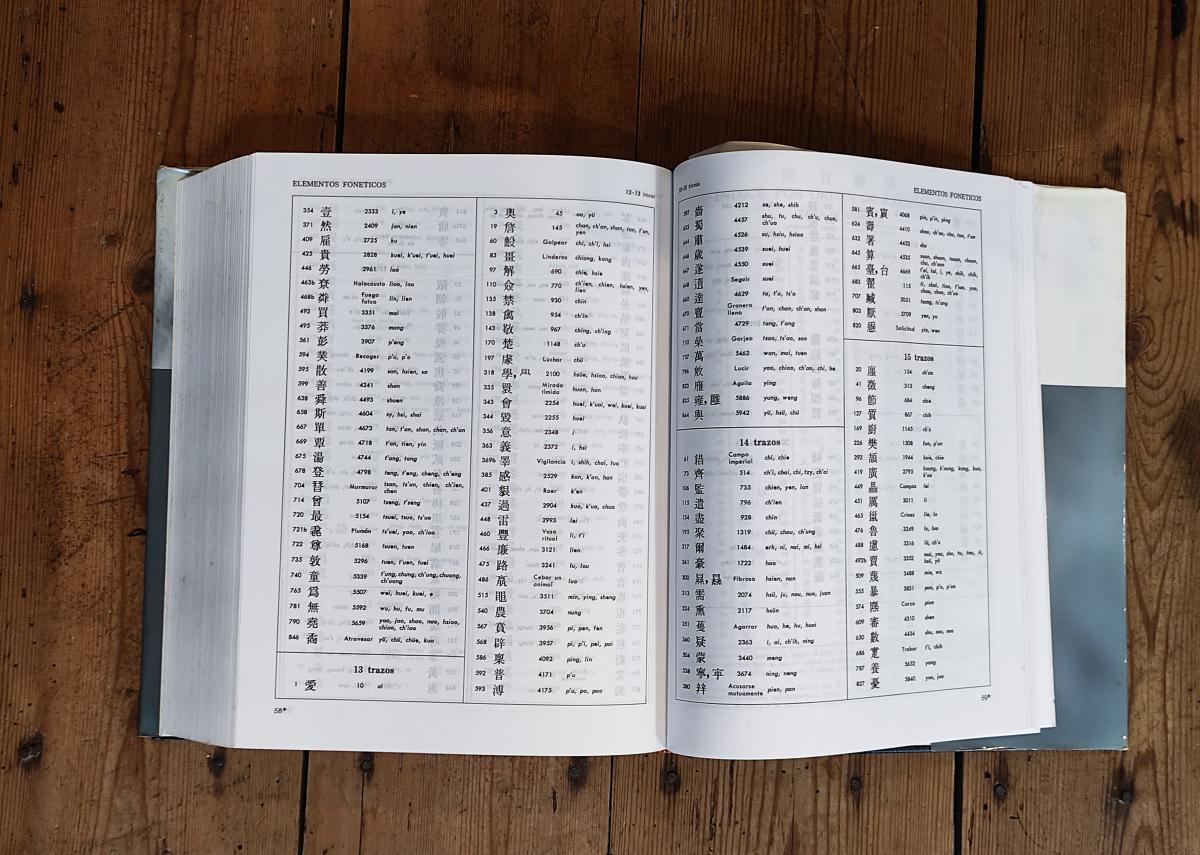 ELEMENTOS FONETICOS
12-13 trazos
354 壹 2333 i, ye
371 然 2409 jan, nien
409 雇 2725 ku
425 貴 2828 kuei, k'uei, t'uei, huei
446 勞 2961 lao
463b 尞 Holocausto liao, lao
468b 粦 Fuego fatuo lin, lien
492 買 3351 mai
495 莽 3376 mang
561 彭 3907 p'eng
594 菐 Recoger p'u, p'o
595 散 4199 san, hsien, sa
599 善 4241 shan
638 舜 4493 shuen
658 斯 4604 sy, hsi, shai
667 單 4673 tan, t'an, shan, chan, ch'an
669 覃 4718 t'an, tien, yin
675 湯 4744 t'ang, tang
678 登 4798 teng, t'eng, cheng, ch'eng
704 朁 Murmurar tsan, ts'an, chien, ch'ien, chen
714 曾 5107 tseng, t'seng
720 最 5154 tsuei, tsuo, ts'uo
721b 毳 Plumón ts'uei, yao, ch'iao
722 尊 5168 tsuen, tuen
735 敦 5296 tuen, t'uen, tuei
740 童 5339 t'ung, chung, ch'ung, chuang, ch'uang
765 爲 5507 wei, huei, kuei, e
781 無 5592 wu, hu, fu, mu
790 堯 5659 yao, jao, shao, nao, hsiao, chiao, ch'iao
846 矞 Atravesar yü, chü, chüe, kua
13 trazos
1 愛 10 ai
58*
3 奧 45 ao, yü
19 詹 145 chan, ch'an, shan, tan, t'an, yen
60 毄 Golpear chi, ch'i, hsi
83 畺 Linderos chiang, kang
97 解 690 chie, hsie
110 僉 770 ch'ien, chien, hsien, yen, lien
135 禁 930 chin
138 禽 954 ch'in
143 敬 967 ching, ch'ing
170 楚 1148 ch'u
197 豦 Luchar chü
318 學, 𦥯 2100 hsüe, hsiao, chiao, hou
335 睘 Mirada tímida huan, han
343 會 2254 huei, k'uai, wei, kuei, kuai
344 毀 2255 huei
356 意 2348 i
363 義 2372 i, hsi
369b 睪 Vigilancia i, shih, chai, tuo
385 感 2529 kan, k'an, han
401 貇 Roer k'en
437 過 2904 kuo, k'uo, chua
448 雷 2993 lei
460 豐 Vaso ritual li, t'i
466 廉 3121 lien
475 路 3241 lu, lou
486 𣎆 Cebar un animal luo
515 黽 3511 min, ying, sheng
540 農 3704 nung
567 賁 3956 pi, pen, fen
568 辟 3957 pi, p'i, pei, pai
586 稟 4092 ping, lin
592 普 4171 p'u
593 溥 4175 p'u, po, pao
12-15 trazos
ELEMENTOS FONETICOS
597 嗇 4212 se, she, shih
633 蜀 4457 shu, tu, chu, ch'u, chuo, ch'uo
644 肅 4526 su, hsiu, hsiao
646 歲 4539 suei, huei
647 遂 4550 suei
648 㒸 Seguir suei
662 達 4629 ta, t'a, ts'a
670 亶 Granero lleno t'an, chan, ch'an, shan
671 當 4729 tang, t'ang
710 喿 Gorjeo tsao, ts'ao, sao
757 萬 5462 wan, mai, tuen
796 敫 Lucir yao, chiao, ch'ao, chi, he
823 䧹 Aguila ying
835 雍, 雝 5886 yung, weng
844 與 5942 yü, hsü, chü
14 trazos
61 耤 Campo imperial chi, chie
73 齊 514 ch'i, chai, chi, tzy, ch'ai
106 監 735 chien, yen, lan
115 遣 796 ch'ien
134 盡 928 chin
195 聚 1319 chü, chou, ch'ung
217 爾 1484 erh, ni, nai, mi, hsi
261 豪 1722 hao
300 㬎, 㬎 Fibroso hsien, nan
313 需 2074 hsü, ju, nou, nuo, juan
324 熏 2117 hsün
351 蒦 Agarrar huo, he, hu, huai
360 疑 2363 i, ai, ch'ih, ning
504 蒙 3440 meng
538 寧, 寍 3674 ning, neng
580 辡 Acusarse mutuamente pien, pan
581 賓, 賔 4068 pin, p'in, ping
624 壽 4410 shou, ch'ou, chu, tao, t'ao
632 署 4432 shu
645 算 4535 suan, shuan, tsuan, chuan, chu, ch'uan
665 臺, 台 4669 t'ai, tai, i, ye, shih, chih, ch'ih
683 翟 115 ti, chai, tiao, t'iao, yao, chuo, chao, ch'uo
707 臧 5031 tsang, ts'ang
803 厭 5709 yen, ya
820 㥯 Solicitud yin, wen
15 trazos
20 廛 154 ch'an
41 徵 313 cheng
96 節 684 chie
127 質 867 chih
169 廚 1145 ch'u
226 樊 1508 fan, p'an
292 頡 1944 hsie, chie
419 廣 2795 kuang, k'uang, kung, kuo, k'uo
449 畾 Campos lei
451 厲 3011 li
465 巤 Crines lie, la
476 魯 3249 lu, luo
488 慮 3316 lü, ch'u
492b 賣 3352 mai, yao, shu, tu, tou, ti, hsi, yü
509 蔑 3488 mie, wa
555 暴 3831 pao, p'u, p'ao
574 麃 Corzo piao
609 審 4310 shen
630 數 4434 shu, sou, suo
686 疐 Trabar t'i, chih
787 養 5632 yang
827 憂 5840 you, jao
59*